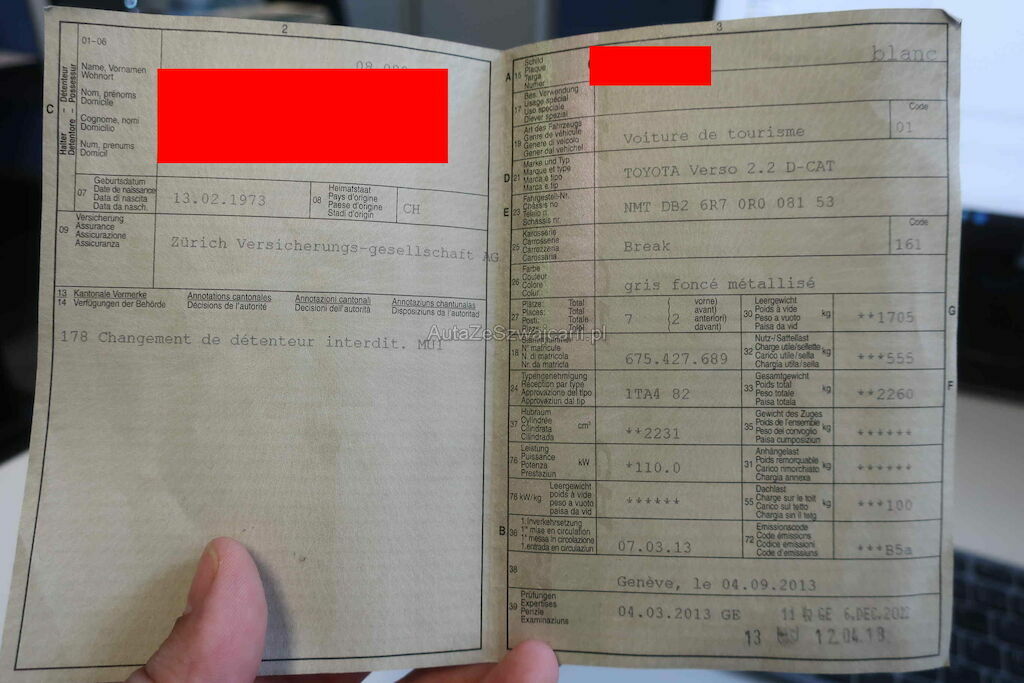 2
01-06
C
Halter - Détenteur
Détentore - Possessur
Name, Vornamen
Wohnort
Nom, prénoms
Domicile
Cognome, nomi
Domicilio
Num, prenums
Domicil
07
Geburtsdatum
Date de naissance
Data di nascita
Data da nasch.
13.02.1973
08
Heimatstaat
Pays d'origine
Paese d'origine
Stadi d'origin
CH
09
Versicherung
Assurance
Assicurazione
Assicuranza
Zürich Versicherungs-gesellschaft AG
13 Kantonale Vermerke
14 Verfügungen der Behörde
Annotations cantonales
Décisions de l'autorité
Annotazioni cantonali
Decisioni dell'autorità
Annotaziuns chantunalas
Disposiziuns da l'autoritad
178 Changement de détenteur interdit. MUT
3
A 15
Schild
Plaque
Targa
Numer
blanc
17
Bes. Verwendung
Usage spécial
Uso speciale
Diever spezial
19
Art des Fahrzeugs
Genre de véhicule
Genere di veicolo
Gener dal vehichel
Voiture de tourisme
Code
01
D 21
Marke und Typ
Marque et type
Marca e tipo
Marca e tip
TOYOTA Verso 2.2 D-CAT
E 23
Fahrgestell-Nr.
Châssis no
Telaio n.
Schassis nr.
NMT DB2 6R7 0R0 081 53
25
Karosserie
Carrosserie
Carrozzeria
Carossaria
Break
Code
161
26
Farbe
Couleur
Colore
Colur
gris foncé métallisé
27
Plätze: Total
Places: Total
Posti: Totale
Total
7
(2
vorne)
avant)
anteriori)
davant)
30
Leergewicht
Poids à vide
Peso a vuoto
Paisa da vid
kg
**1705
G
18
N° matricule
N. di matricola
Nr. da matricla
675.427.689
32
Nutz-/Sattellast
Charge utile/sellette
Carico utile/sella
Chargia utila/sella
kg
***555
24
Typengenehmigung
Réception par type
Approvazione del tipo
Approvaziun dal tip
1TA4 82
33
Gesamtgewicht
Poids total
Peso totale
Paisa totala
kg
**2260
F
37
Hubraum
Cylindrée
Cilindrata
Cilindrada
cm³
**2231
35
Gewicht des Zuges
Poids de l'ensemble
Peso del convoglio
Paisa cumposiziun
kg
******
76
Leistung
Puissance
Potenza
Prestaziun
kW
*110.0
31
Anhängelast
Poids remorquable
Carico rimorchiato
Chargia annexa
kg
******
78 kW/kg
Leergewicht
poids à vide
peso a vuoto
paisa da vid
******
55
Dachlast
Charge sur le toit
Carico sul tetto
Chargia sin il tetg
kg
***100
B 36
1. Inverkehrsetzung
1re mise en circulation
1a messa in circolazione
1. entrada en circulaziun
07.03.13
72
Emissionscode
Code émissions
Codice emissioni
Code d'emissiuns
***B5a
38
Genève, le 04.09.2013
39
Prüfungen
Expertises
Perizie
Examinaziuns
04.03.2013 GE
GE 6.DEC.2022
13
12.04.18
AutaZeSzwajcarii.pl